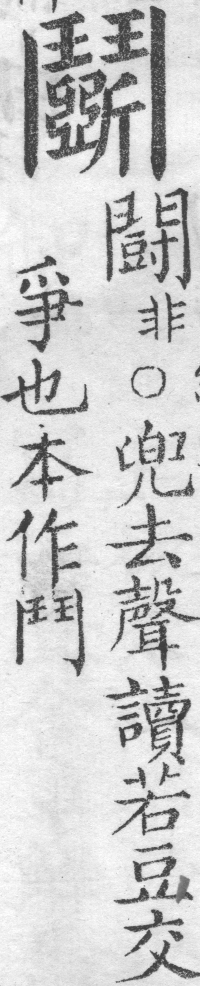 鬭
鬪非○兜去聲讀若豆交
爭也本作鬥